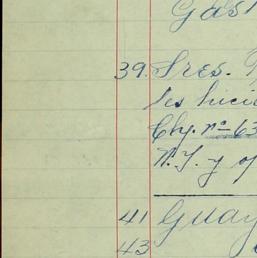 Gas
39. Sres.
les hici
Chq. nº 63
N.Y. y of
41 Guay
43